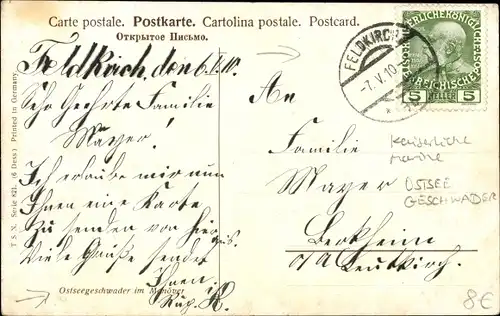 Carte postale. Postkarte. Cartolina postale. Postcard.
Открытое Письмо.
T.S.N. Serie 821. (6 Dess.) Printed in Germany.
Feldkirch, den 6.V.10.
Sehr Geehrte Familie
Mayer!
Ich erlaube mir nun
Ihnen eine Karte
zu senden von hier
aus.
Viele Grüße sendet
Ihnen
Rup. R.
Ostseegeschwader im Manöver
FELDKIRCH
-7.V.10
5 HELLER 5
An
Familie
Mayer
Berkheim
o/A Leutkirch.
Kaiserliche
Marine
OSTSEE
GESCHWADER
8€